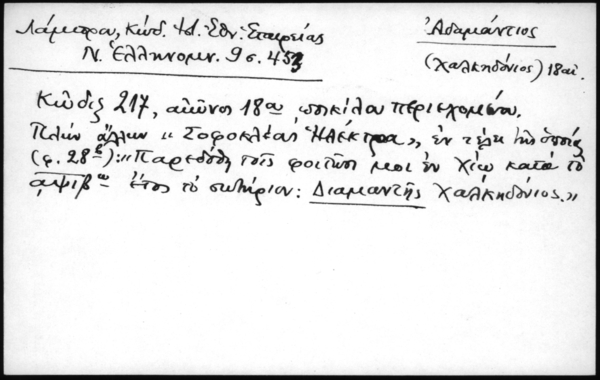 Λάμπρου, Κώδ. Ἱστ. Ἐθν. Ἑταιρείας
Ν. Ἑλληνομν. 9 σ. 453
Ἀδαμάντιος
(Χαλκηδόνιος) 18 αἰ.
Κῶδιξ 217, αἰῶνος 18ου ποικίλου περιεχομένου.
Πλὴν ἄλλων "Σοφοκλέας Ἠλέκτρα", ἐν τέλει τῆς ὁποίας
(φ. 28β): "Παρεδόθη τοῖς φοιτῶσί μοι ἐν Χίῳ κατὰ τὸ
αψιβον ἔτος τὸ σωτήριον: Διαμαντῆς Χαλκηδόνιος."